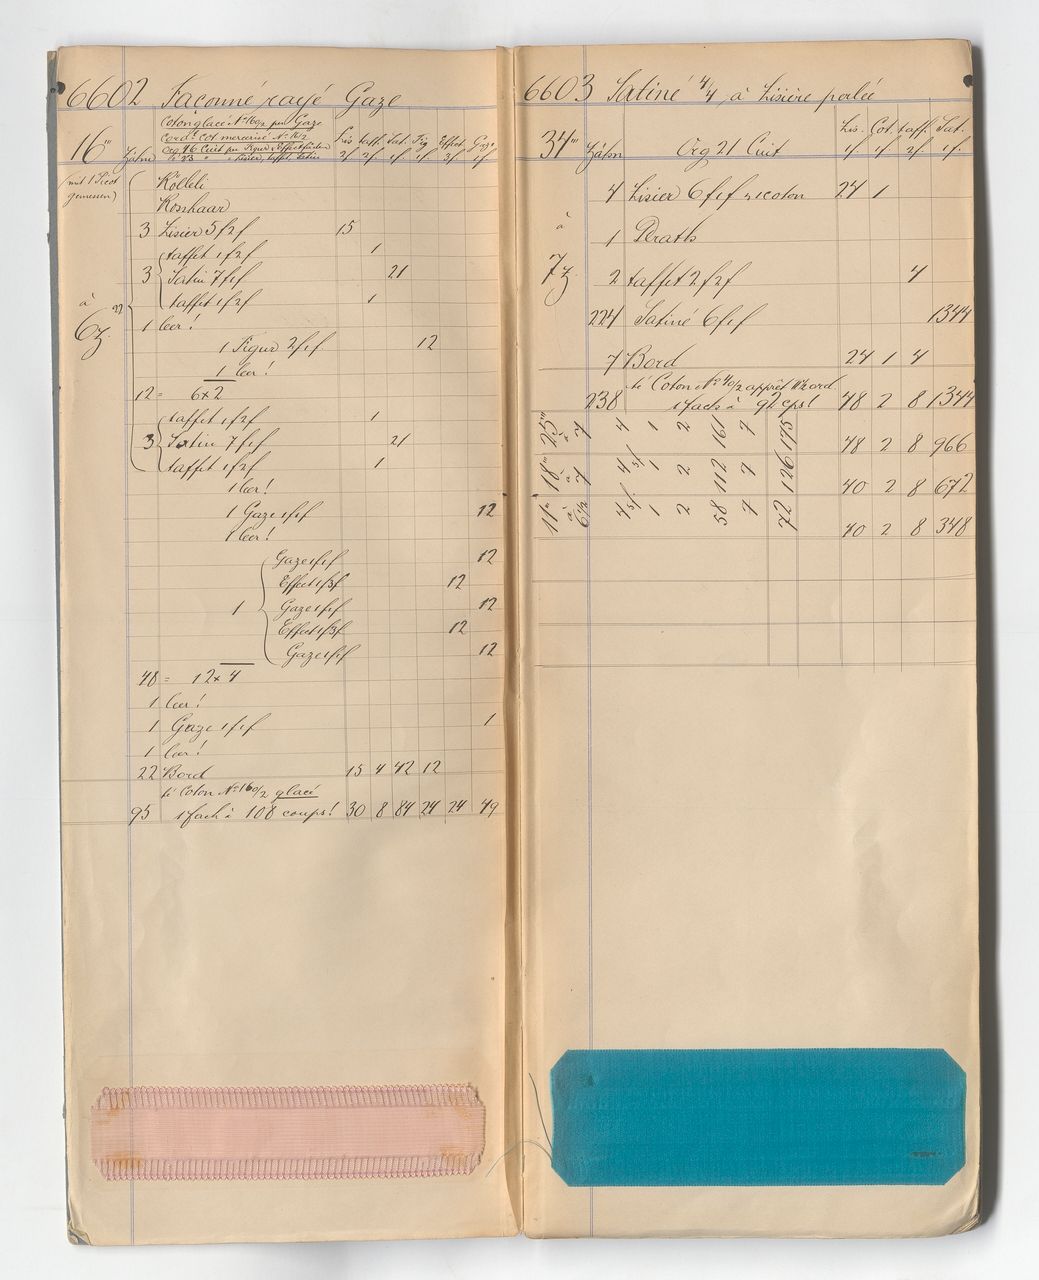 6602 Façonné rayé Gaze
16''' Zähn Coton glacé Nº 160/2 per Gaze
Cord. cot. mercerisé Nº 16/2
Org 46 Cuit per Figur, Effectfäden
Lis. taff. Sat. Fig Effect. Gaze
2f 2f 1f 1f 3f 1f
(mit 1 Picot gemessen)
Kölleli
Rosshaar
3 Lisier 5f2f 15
taffet 1f2f 1
3 Satin 7f1f 21
taffet 1f2f 1
à 6z. 22
1 leer!
1 Figur 2f1f 12
1 leer!
12 = 6x2
taffet 1f2f 1
3 Satin 7f1f 21
taffet 1f2f 1
1 leer!
1 Gaze 1f1f 12
1 leer!
Gaze 1f1f 12
Effect 1f3f 12
1 Gaze 1f1f 12
Effect 1f3f 12
Gaze 1f1f 12
48 = 12x4
1 leer!
1 Gaze 1f1f 1
1 leer!
22 Bord 15 4 42 12
té Coton Nº 160/2 glacé
95 1 fach à 108 coups! 30 8 84 24 24 49
6603 Satiné 4/4, à Lisière perlée
34''' Zähn Org 21 Cuit
Lis. Cot. taff. Sat.
1f 1f 2f 1f
4 Lisier 6f1f 24 1
à
1 Draht
7z.
2 taffet 2f2f 4
224 Satiné 6f1f 1344
7 Bord 24 1 4
té Coton Nº 40/2 apprêt
238 1 fach à 92 cps! 48 2 8 1344
25''' à 7 4 1 2 161 7 175 48 2 8 966
18''' à 7 4 5f 1 2 112 7 126 40 2 8 672
11''' à 6 1/2 4 5f 1 2 58 7 72 40 2 8 348